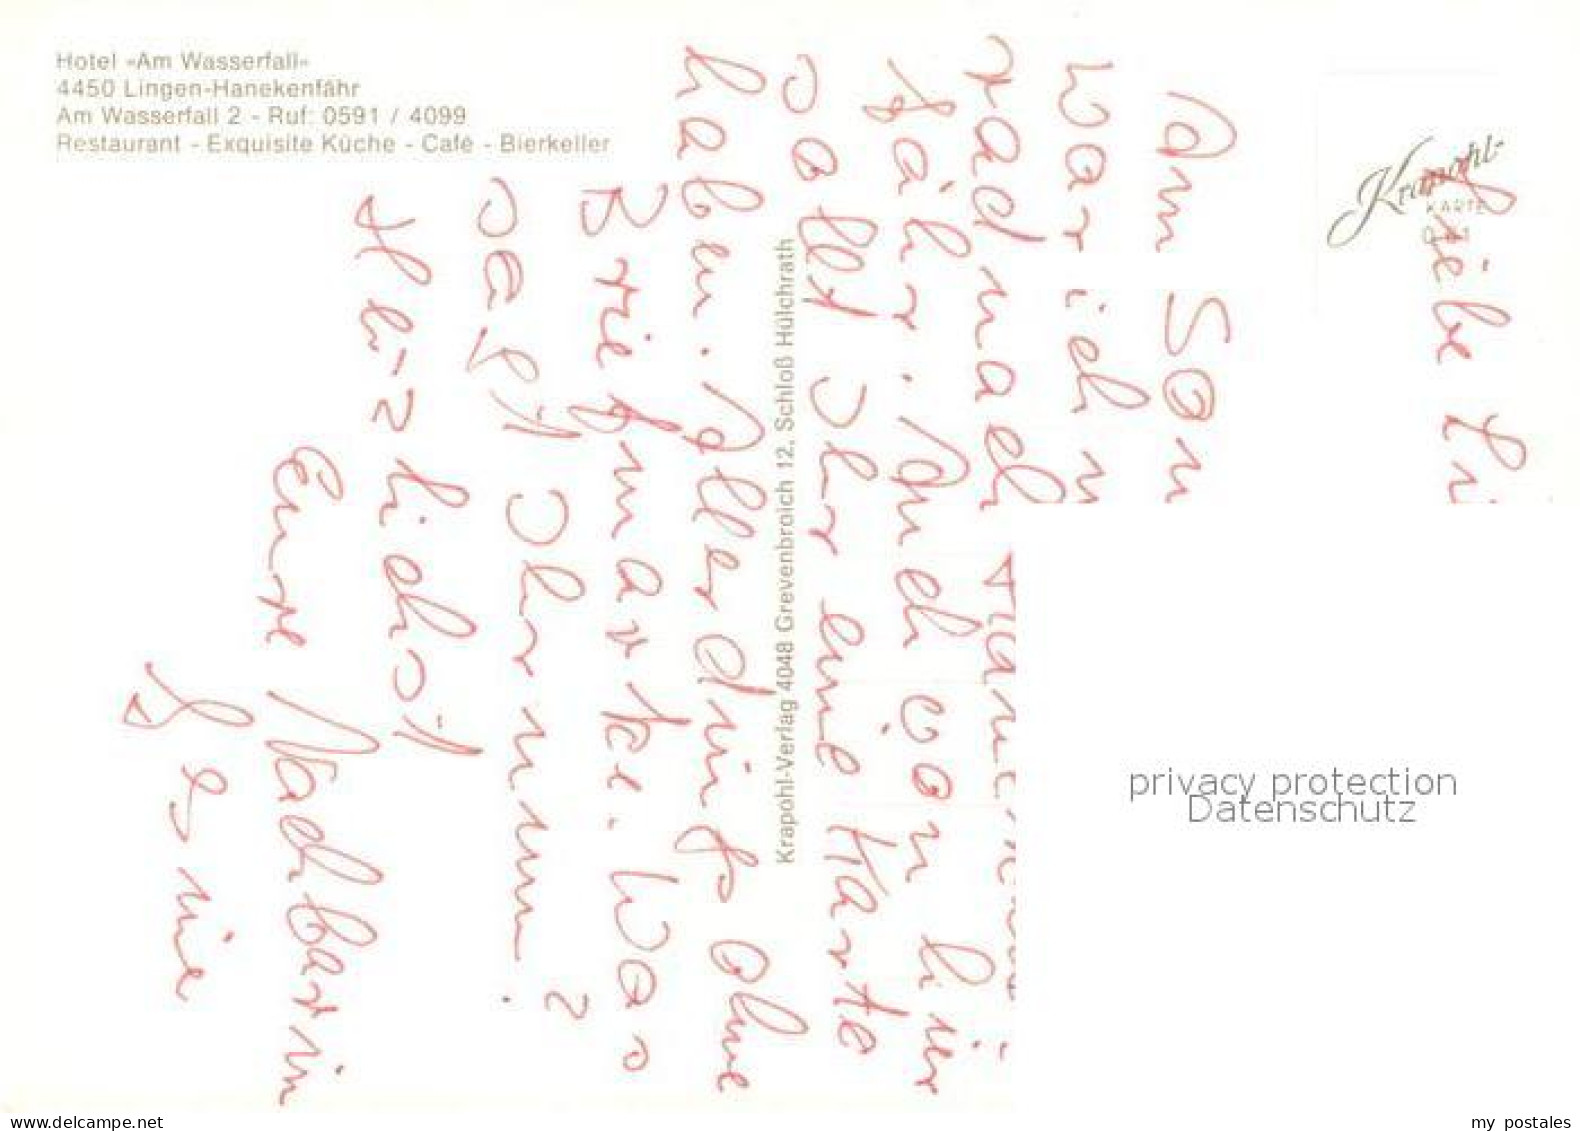 Hotel «Am Wasserfall»
4450 Lingen-Hanekenfähr
Am Wasserfall 2 - Ruf: 0591 / 4099
Restaurant - Exquisite Küche - Café - Bierkeller
Krapohl-
KARTE
Krapohl-Verlag 4048 Grevenbroich 12, Schloß Hülchrath
Liebe
Am Son
war ich
Rad nach
fähr. Auch von hier
sollt Ihr eine Karte
haben. Allerdings ohne
Briefmarke. Was
sagt Ihr nun?
Herzlichst
Eure Nachbarin
privacy protection
Datenschutz
www.delcampe.net
my postales